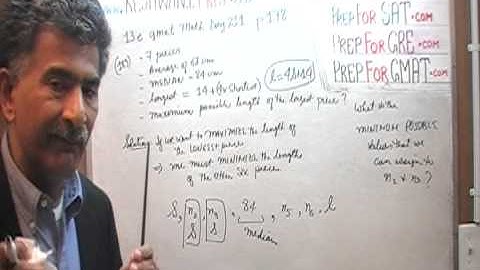 13e GMAT Math Day 221 p178
PREP FOR SAT.com
PREP FOR GRE.com
PREP FOR GMAT.com
- 7 pieces
- Average of 68 cm
- median = 84 cm
- longest = 14 + (4x shortest)
l = 4s+14
- maximum possible length of the longest piece?
Setting: If we want to MAXIMIZE the length of
the LONGEST piece
⇒ we must MINIMIZE the length
of the other six pieces
What is the
MINIMUM POSSIBLE
values that we
can assign to
n2 & n3?
S, , , 84 , n5, n6, l
S S
median